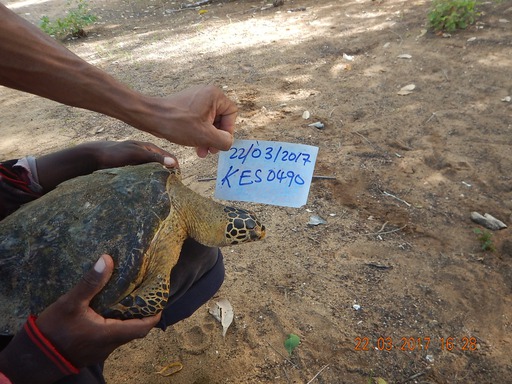 22/03/2017
KES0490
22.03.2017 16:38